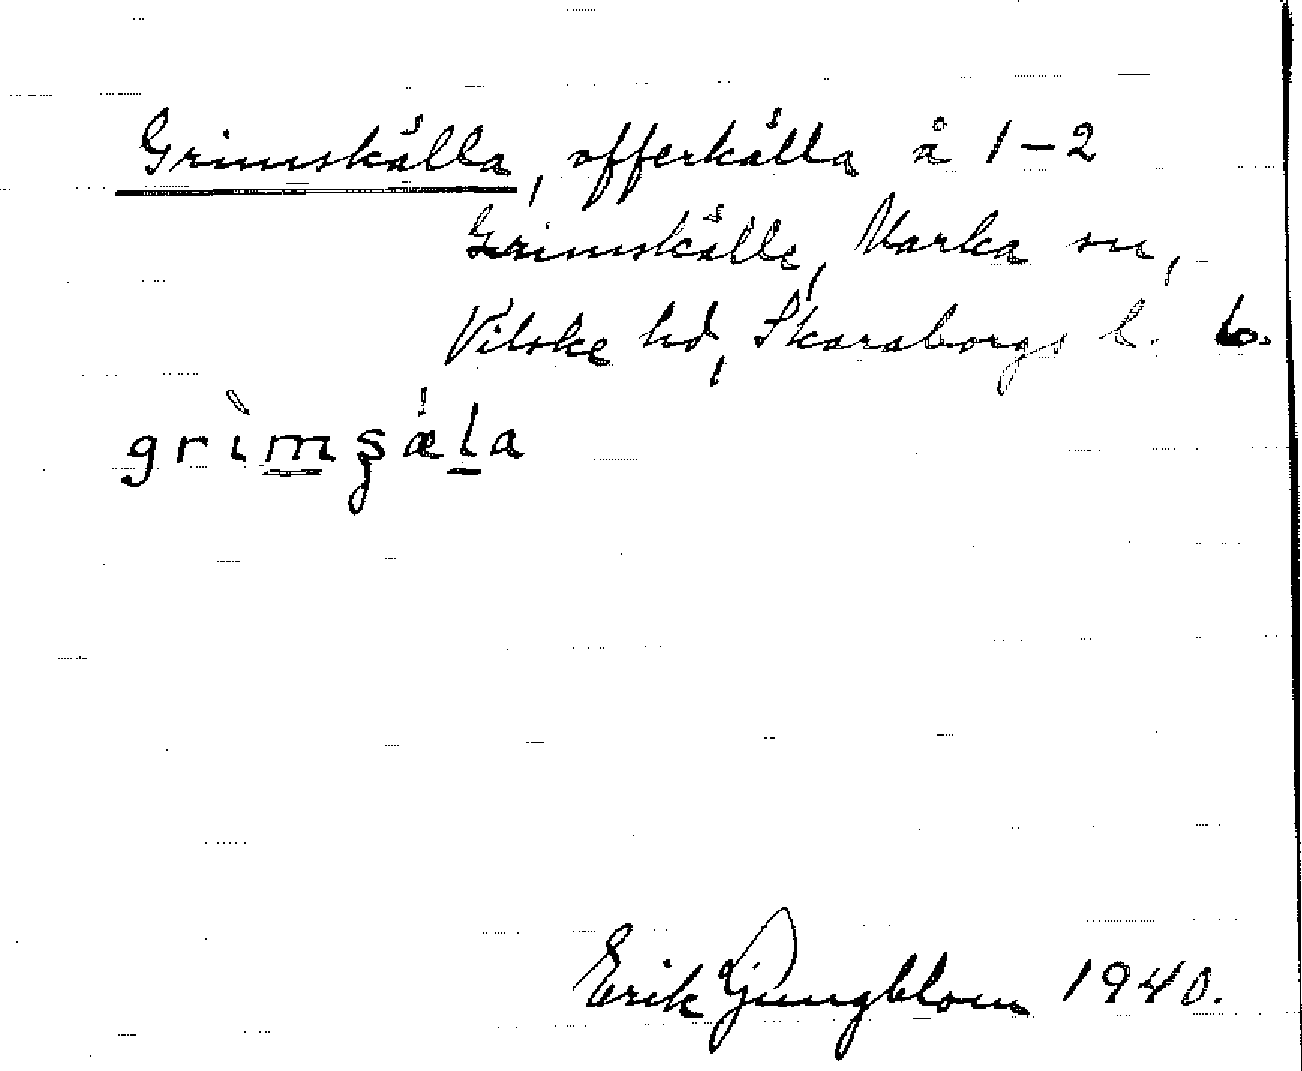 Grimskälla, offerkälla å 1-2
Grimskälle, Marka sn,
Vilske hd, Skaraborgs l. 6.
Erik Ljungblom 1940.